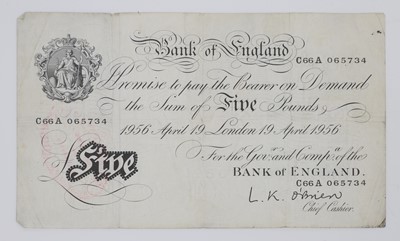 Bank of England
C66A 065734
I Promise to pay the Bearer on Demand
the Sum of Five Pounds
C66A 065734
1956 April 19 London 19 April 1956
Five
For the Gov.r and Comp.a of the
BANK OF ENGLAND.
C66A 065734
L. K. O'Brien
Chief Cashier.